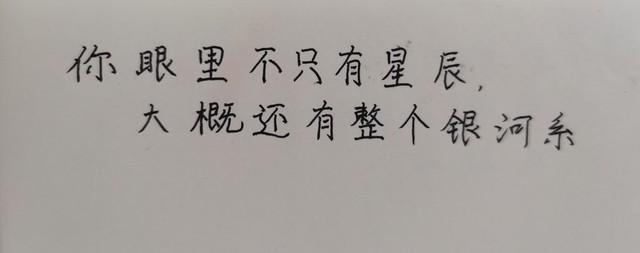 你眼里不只有星辰,
大概还有整个银河系